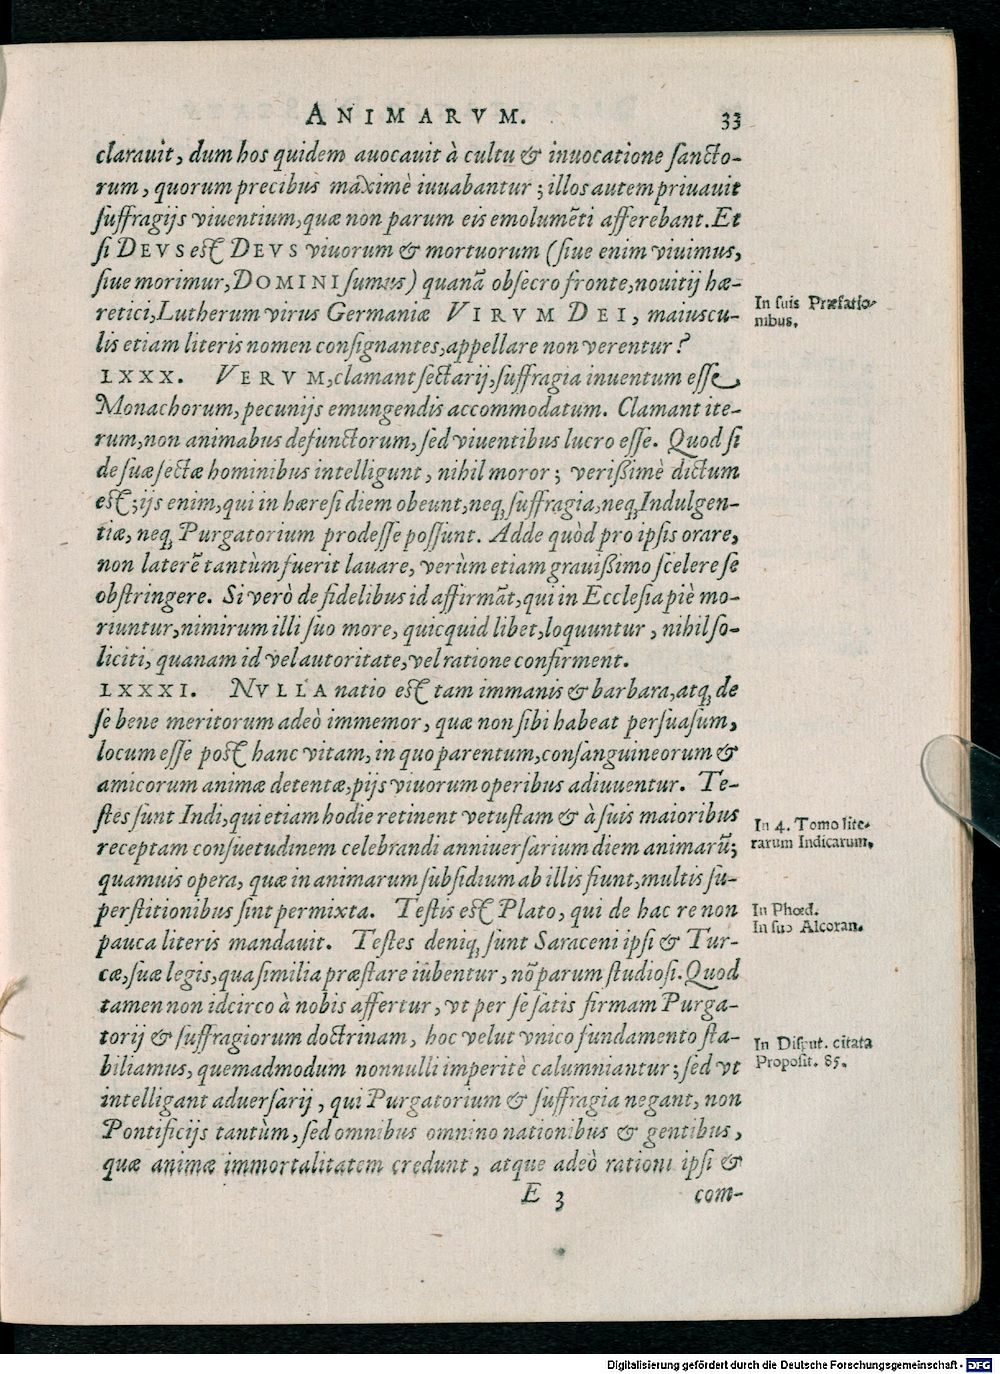 ANIMARVM. 33
clarauit, dum hos quidem auocauit à cultu & inuocatione sancto-
rum, quorum precibus maximè iuuabantur; illos autem priuauit
suffragijs viuentium, quæ non parum eis emolumẽti afferebant. Et
si DEVS est DEVS viuorum & mortuorum (siue enim viuimus,
siue morimur, DOMINI sumus) quanã obsecro fronte, nouitij hæ-
retici, Lutherum virus Germaniæ VIRVM DEI, maiuscu-
lis etiam literis nomen consignantes, appellare non verentur?
In suis Præfatio-
nibus.
LXXX. VERVM, clamant sectarij, suffragia inuentum esse
Monachorum, pecunijs emungendis accommodatum. Clamant ite-
rum, non animabus defunctorum, sed viuentibus lucro esse. Quod si
de suæ sectæ hominibus intelligunt, nihil moror; verißimè dictum
est; ijs enim, qui in hæresi diem obeunt, neq; suffragia, neq; Indulgen-
tiæ, neq; Purgatorium prodesse possunt. Adde quòd pro ipsis orare,
non laterẽ tantùm fuerit lauare, verùm etiam grauißimo scelere se
obstringere. Si verò de fidelibus id affirmãt, qui in Ecclesia piè mo-
riuntur, nimirum illi suo more, quicquid libet, loquuntur, nihil so-
liciti, quanam id vel autoritate, vel ratione confirment.
LXXXI. NVLLA natio est tam immanis & barbara, atq; de
se bene meritorum adeò immemor, quæ non sibi habeat persuasum,
locum esse post hanc vitam, in quo parentum, consanguineorum &
amicorum animæ detentæ, pijs viuorum operibus adiuuentur. Te-
stes sunt Indi, qui etiam hodie retinent vetustam & à suis maioribus
receptam consuetudinem celebrandi anniuersarium diem animarũ;
In 4. Tomo lite-
rarum Indicarum.
quamuis opera, quæ in animarum subsidium ab illis fiunt, multis su-
perstitionibus sint permixta. Testis est Plato, qui de hac re non
pauca literis mandauit. Testes deniq; sunt Saraceni ipsi & Tur-
In Phœd.
In suo Alcoran.
cæ, suæ legis, qua similia præstare iubentur, nõ parum studiosi. Quod
tamen non idcirco à nobis affertur, vt per se satis firmam Purga-
torij & suffragiorum doctrinam, hoc velut vnico fundamento sta-
biliamus, quemadmodum nonnulli imperitè calumniantur; sed vt
In Disput. citata
Proposit. 85.
intelligant aduersarij, qui Purgatorium & suffragia negant, non
Pontificijs tantùm, sed omnibus omnino nationibus & gentibus,
quæ animæ immortalitatem credunt, atque adeò rationi ipsi &
E 3 com-
Digitalisierung gefördert durch die Deutsche Forschungsgemeinschaft - DFG